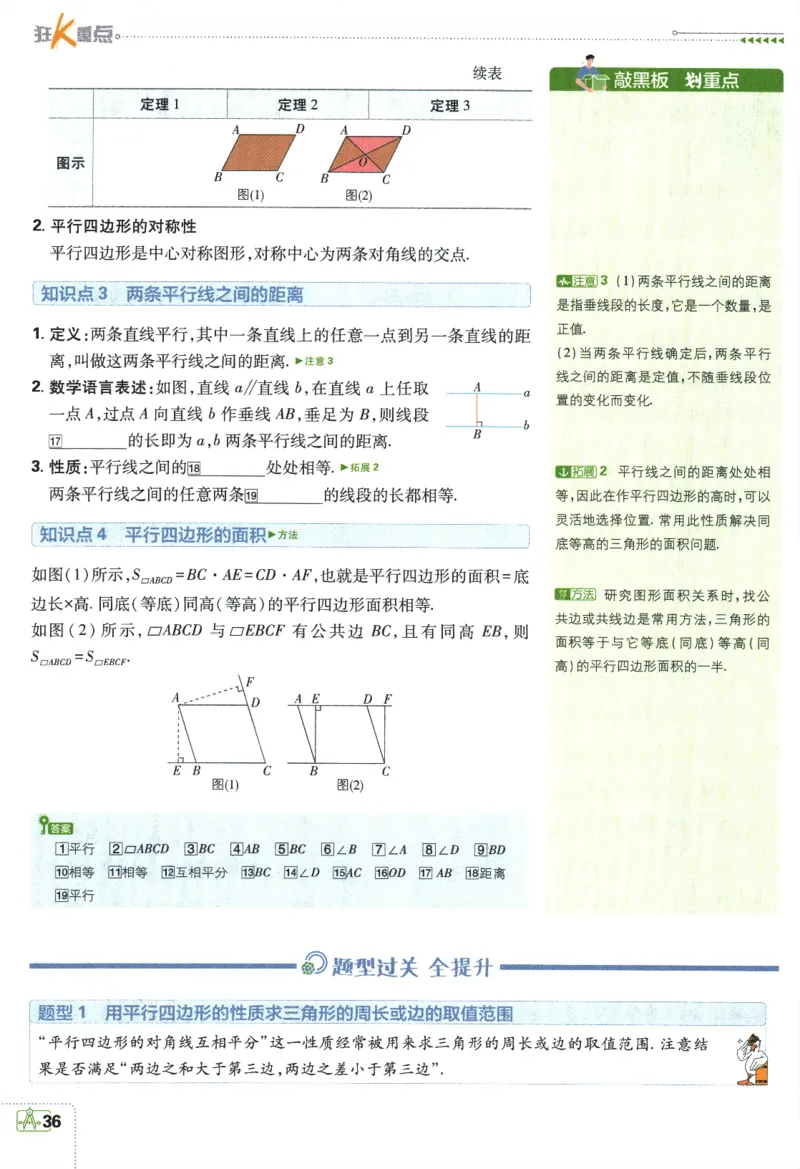 狂K重点
续表
定理 1 定理 2 定理 3
图示
A D B C
图(1)
A D O B C
图(2)
2. 平行四边形的对称性
平行四边形是中心对称图形,对称中心为两条对角线的交点.
知识点 3 两条平行线之间的距离
1. 定义:两条直线平行,其中一条直线上的任意一点到另一条直线的距
离,叫做这两条平行线之间的距离. ▶注意 3
2. 数学语言表述:如图,直线 a∥直线 b,在直线 a 上任取
一点 A,过点 A 向直线 b 作垂线 AB,垂足为 B,则线段
17________的长即为 a,b 两条平行线之间的距离.
A a
b
B
3. 性质:平行线之间的18________处处相等. ▶拓展 2
两条平行线之间的任意两条19________的线段的长都相等.
知识点 4 平行四边形的面积▶方法
如图(1)所示,S▱ABCD=BC·AE=CD·AF,也就是平行四边形的面积=底
边长×高. 同底(等底)同高(等高)的平行四边形面积相等.
如图(2)所示,▱ABCD 与▱EBCF 有公共边 BC,且有同高 EB,则
S▱ABCD=S▱EBCF.
F
A D
E B C
图(1)
A E D F
B C
图(2)
答案
1平行 2▱ABCD 3BC 4AB 5BC 6∠B 7∠A 8∠D 9BD
10相等 11相等 12互相平分 13BC 14∠D 15AC 16OD 17AB 18距离
19平行
敲黑板 划重点
注意 3 (1)两条平行线之间的距离
是指垂线段的长度,它是一个数量,是
正值.
(2)当两条平行线确定后,两条平行
线之间的距离是定值,不随垂线段位
置的变化而变化.
拓展 2 平行线之间的距离处处相
等,因此在作平行四边形的高时,可以
灵活地选择位置. 常用此性质解决同
底等高的三角形的面积问题.
方法 研究图形面积关系时,找公
共边或共线边是常用方法,三角形的
面积等于与它等底(同底)等高(同
高)的平行四边形面积的一半.
题型过关 全提升
题型 1 用平行四边形的性质求三角形的周长或边的取值范围
“平行四边形的对角线互相平分”这一性质经常被用来求三角形的周长或边的取值范围. 注意结
果是否满足“两边之和大于第三边,两边之差小于第三边”.
36